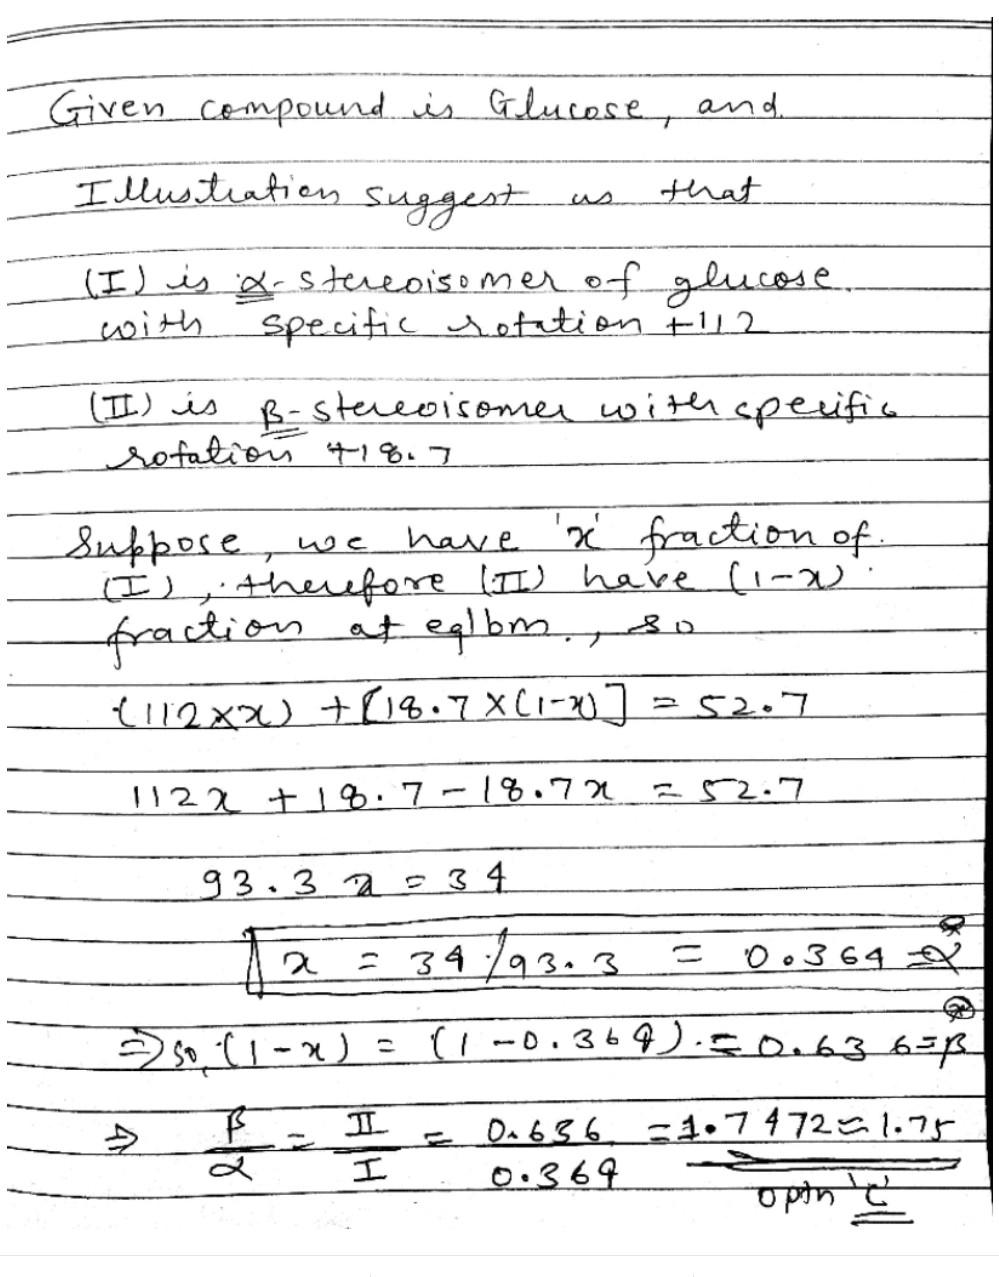 Given compound is Glucose, and.
Illustration suggest us that
(I) is α-stereoisomer of glucose.
with specific rotation +112
(II) is β-stereoisomer with specific
rotation +18.7
Suppose, we have 'x' fraction of.
(I), therefore (II) have (1-x).
fraction at eqlbm., so
(112×x) + [18.7×(1-x)] = 52.7
112x + 18.7 - 18.7x = 52.7
93.3 x = 34
x = 34/93.3 = 0.364 = α
⇒ so, (1-x) = (1-0.364). = 0.636 = β
⇒ β/α = II/I = 0.636/0.364 = 1.7472 ≈ 1.75
optn 'c'